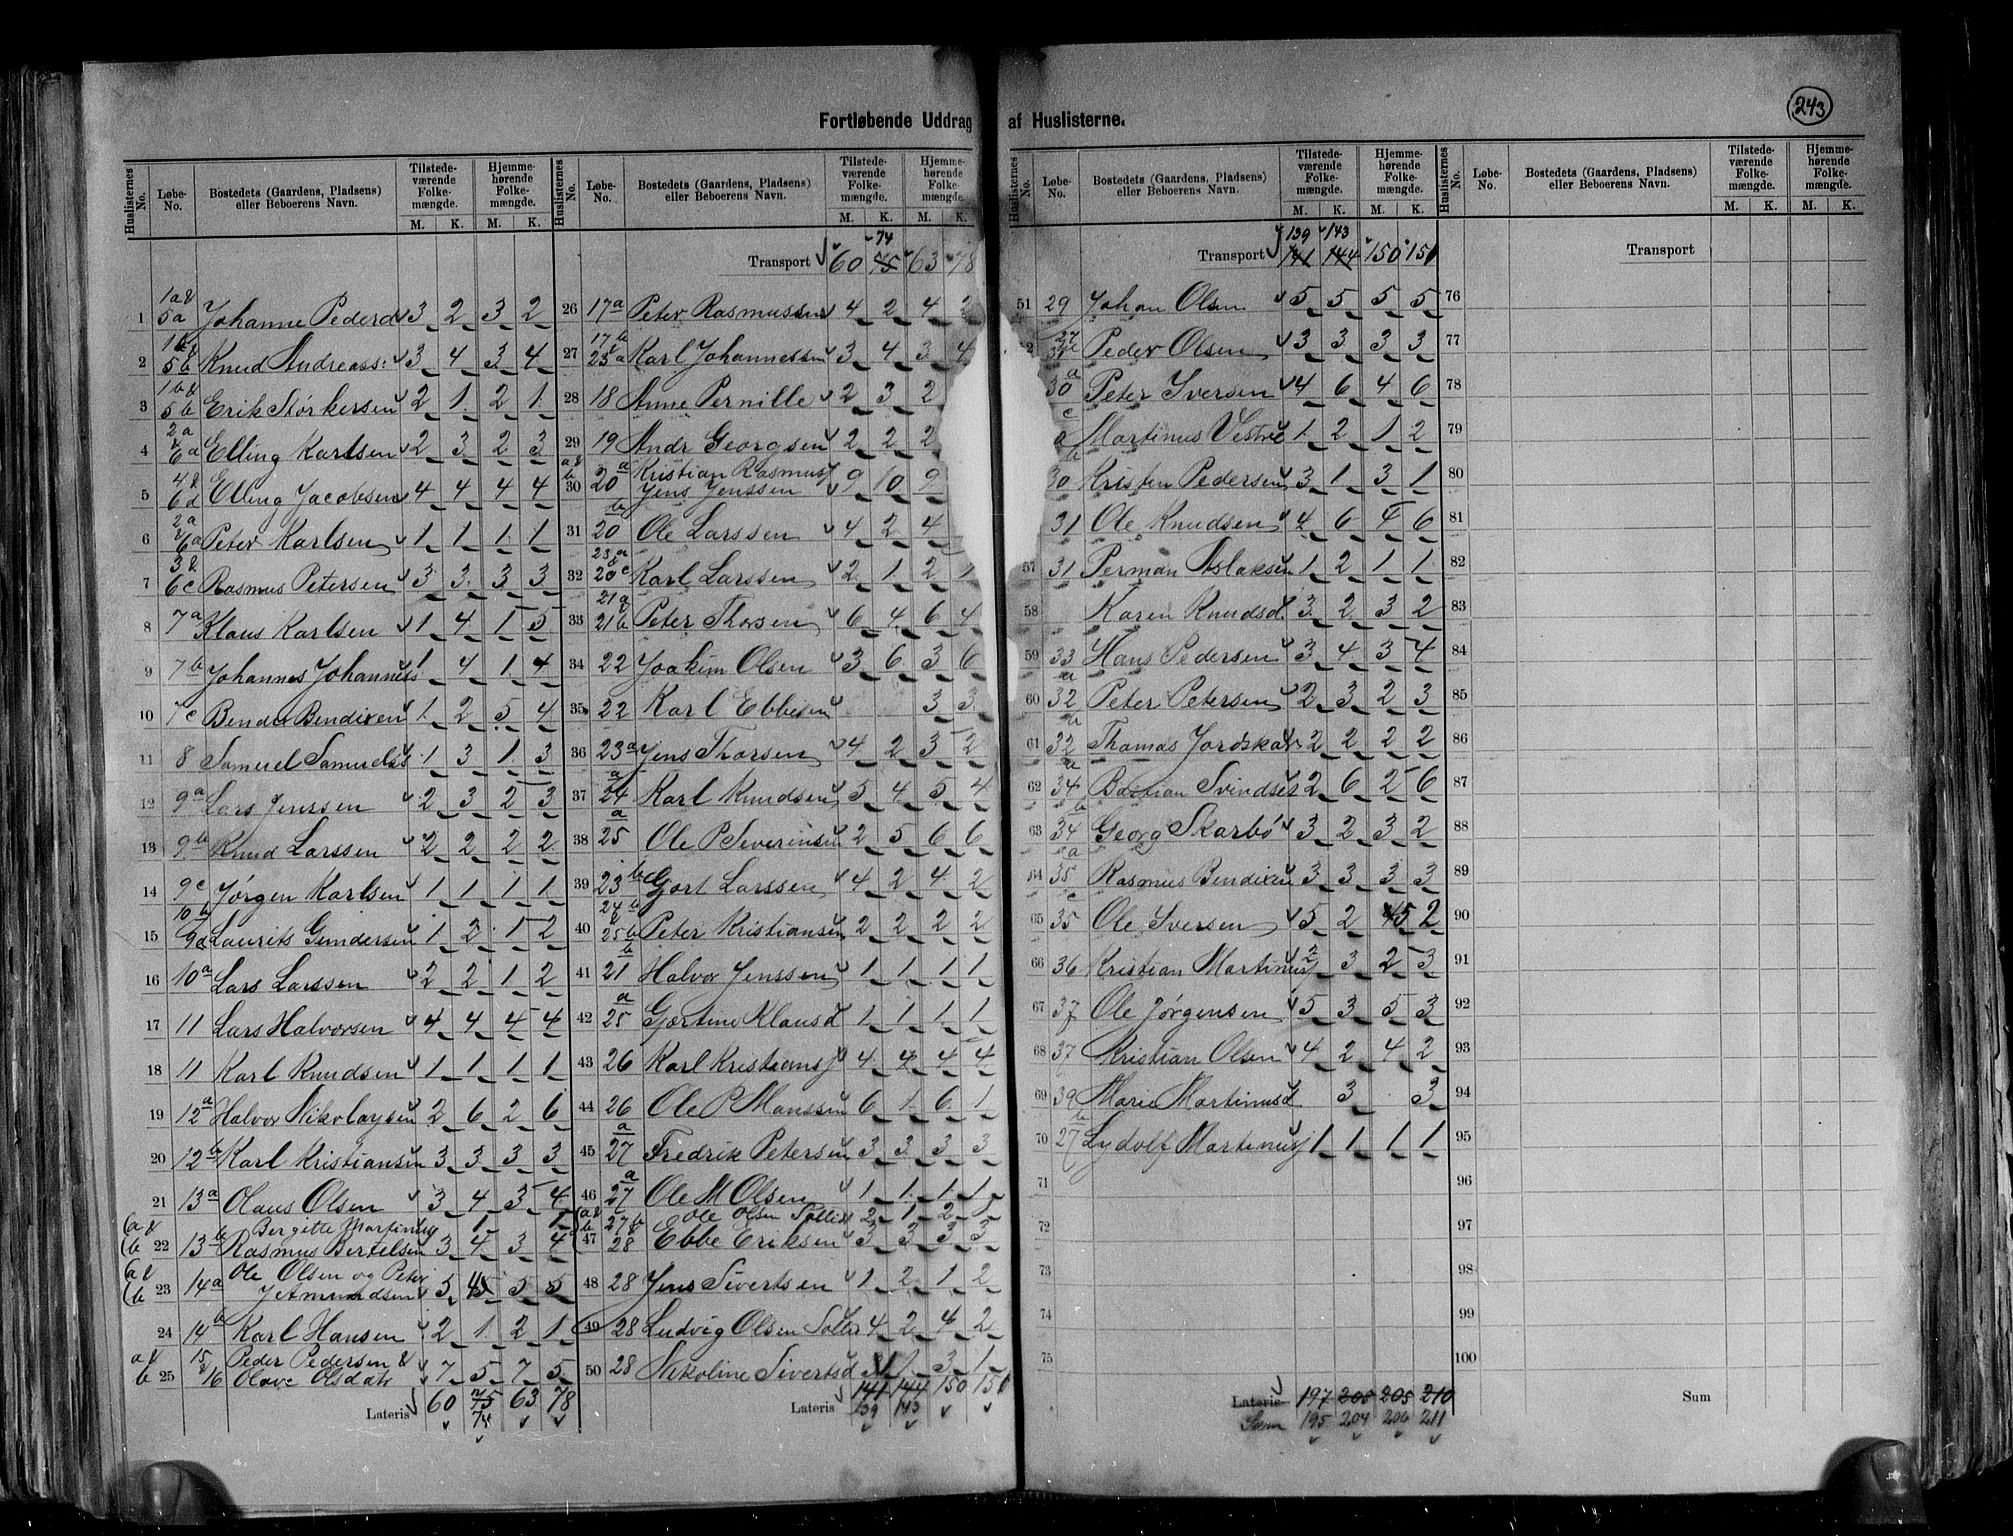 243
Fortløbende Uddrag af Huslisterne.
Huslisternes No. Løbe-No. Bostedets (Gaardens, Pladsens) eller Beboerens Navn. Tilstedeværende Folkemængde. M. K. Hjemmehørende Folkemængde. M. K.
1 1a & 5a Johanne Pedersd 3 2 3 2
2 5b Knud Andreass: 3 4 3 4
3 1b & 5b Erik Størkersen 2 1 2 1
4 2a & 6a Elling Karlsen 2 3 2 3
5 4 & 6d Elling Jacobsen 4 4 4 4
6 2a & 6a Peter Karlsen 1 1 1 1
7 3 & 6c Rasmus Petersen 3 3 3 3
8 7a Klaus Karlsen 1 4 1 5
9 7b Johannes Johannes 1 4 1 4
10 7c Bendix Bendixen 1 2 5 4
11 8 Samuel Samuels 1 3 1 3
12 9a Lars Jenssen 2 3 2 3
13 9b Knud Larssen 2 2 2 2
14 9c Jørgen Karlsen 1 1 1 1
15 10b 9d Laurits Gundersen 1 2 1 2
16 10a Lars Larssen 2 2 1 2
17 11 Lars Halvorsen 4 4 4 4
18 11 Karl Knudsen 1 1 1 1
19 12a Halvor Nikolaysen 2 6 2 6
20 12b Karl Kristiansen 3 3 3 3
21 13a Olaus Olsen 3 4 3 4
(a & Bergitte Martin 1 1
(b 22 13b Rasmus Bertelsen 3 4 3 4
(a & Ole Olsen og Peter
(b 23 14a J Amundsen 5 5 5 5
24 14b Karl Hansen 2 1 2 1
a & 15 Peder Pedersen &
b 25 & 16 Olave Olsdatr 7 5 7 5
Lateris 60 75 63 78
74
Transport 60 75 63 78
74
26 17a Peter Rasmussen 4 2 4 2
27 17b & 23a Karl Johannessen 3 4 3 4
28 18 Anne Pernille 2 3 2
29 19 Andr Georgsen 2 2 2
a & a Kristian Rasmuss
b 30 20 Jens Jenssen 9 10 9
31 20b Ole Larssen 4 2 4
32 23a & 20c Karl Larssen 2 1 2 1
33 21a & 21b Peter Thorsen 6 4 6 4
34 22 Joakim Olsen 3 6 3 6
35 22 Karl Ebbesen 3 3
36 23a Jens Thorsen 4 2 3 2
37 24a Karl Knudsen 5 4 5 4
38 25a Ole P Severinsen 2 5 6 6
39 23b Gjert Larssen 4 2 4 2
40 24b & 25b Peter Kristiansen 2 2 2 2
41 21b Halvor Jenssen 1 1 1 1
42 25a Gjertine Klausd 1 1 1 1
43 26 Karl Kristians 4 4 4 4
44 26 Ole P Monssen 6 1 6 1
45 27a Fredrik Petersen 3 3 3 3
46 27a Ole M Olsen 1 1 1 1
(a & 27b Ole Olsen Sollid 2 1 2 1
(b 47 28 Ebbe Eriksen 3 3 3 3
48 28 Jens Sivertsen 1 2 1 2
49 28 Ludvig Olsen 4 2 4 2
50 28 Nikoline Sivertsd 1 3 1
Lateris 141 144 150 151
139 143
Transport 141 144 150 151
139 143
51 29 Johan Olsen 5 5 5 5
2 Peder Olsen 3 3 3 3
30a Peter Iversen 4 6 4 6
Martinus Vestre 1 2 1 2
30 Kristen Pedersen 3 1 3 1
31 Ole Knudsen 4 6 4 6
57 31 Perman Aslaksen 1 2 1 1
58 Karen Knudsd 3 2 3 2
59 33 Hans Pedersen 3 4 3 4
60 32a Peter Petersen 2 3 2 3
61 32b Thomas 2 2 2 2
62 34a Bastian Svindset 2 6 2 6
63 34b Georg Skarbø 3 2 3 2
64 35a Rasmus Bendixen 3 3 3 3
65 35c Ole Iversen 5 2 5 2
66 36 Kristian Martinus 2 3 2 3
67 37 Ole Jørgensen 5 3 5 3
68 37 Kristian Olsen 4 2 4 2
69 39 Marie Martinusd 3 3
70 27b Lydolf Martinus 1 1 1 1
71
72
73
74
75
Lateris 197 205 205 210
Sum 195 204 206 211
Transport
76
77
78
79
80
81
82
83
84
85
86
87
88
89
90
91
92
93
94
95
96
97
98
99
100
Sum